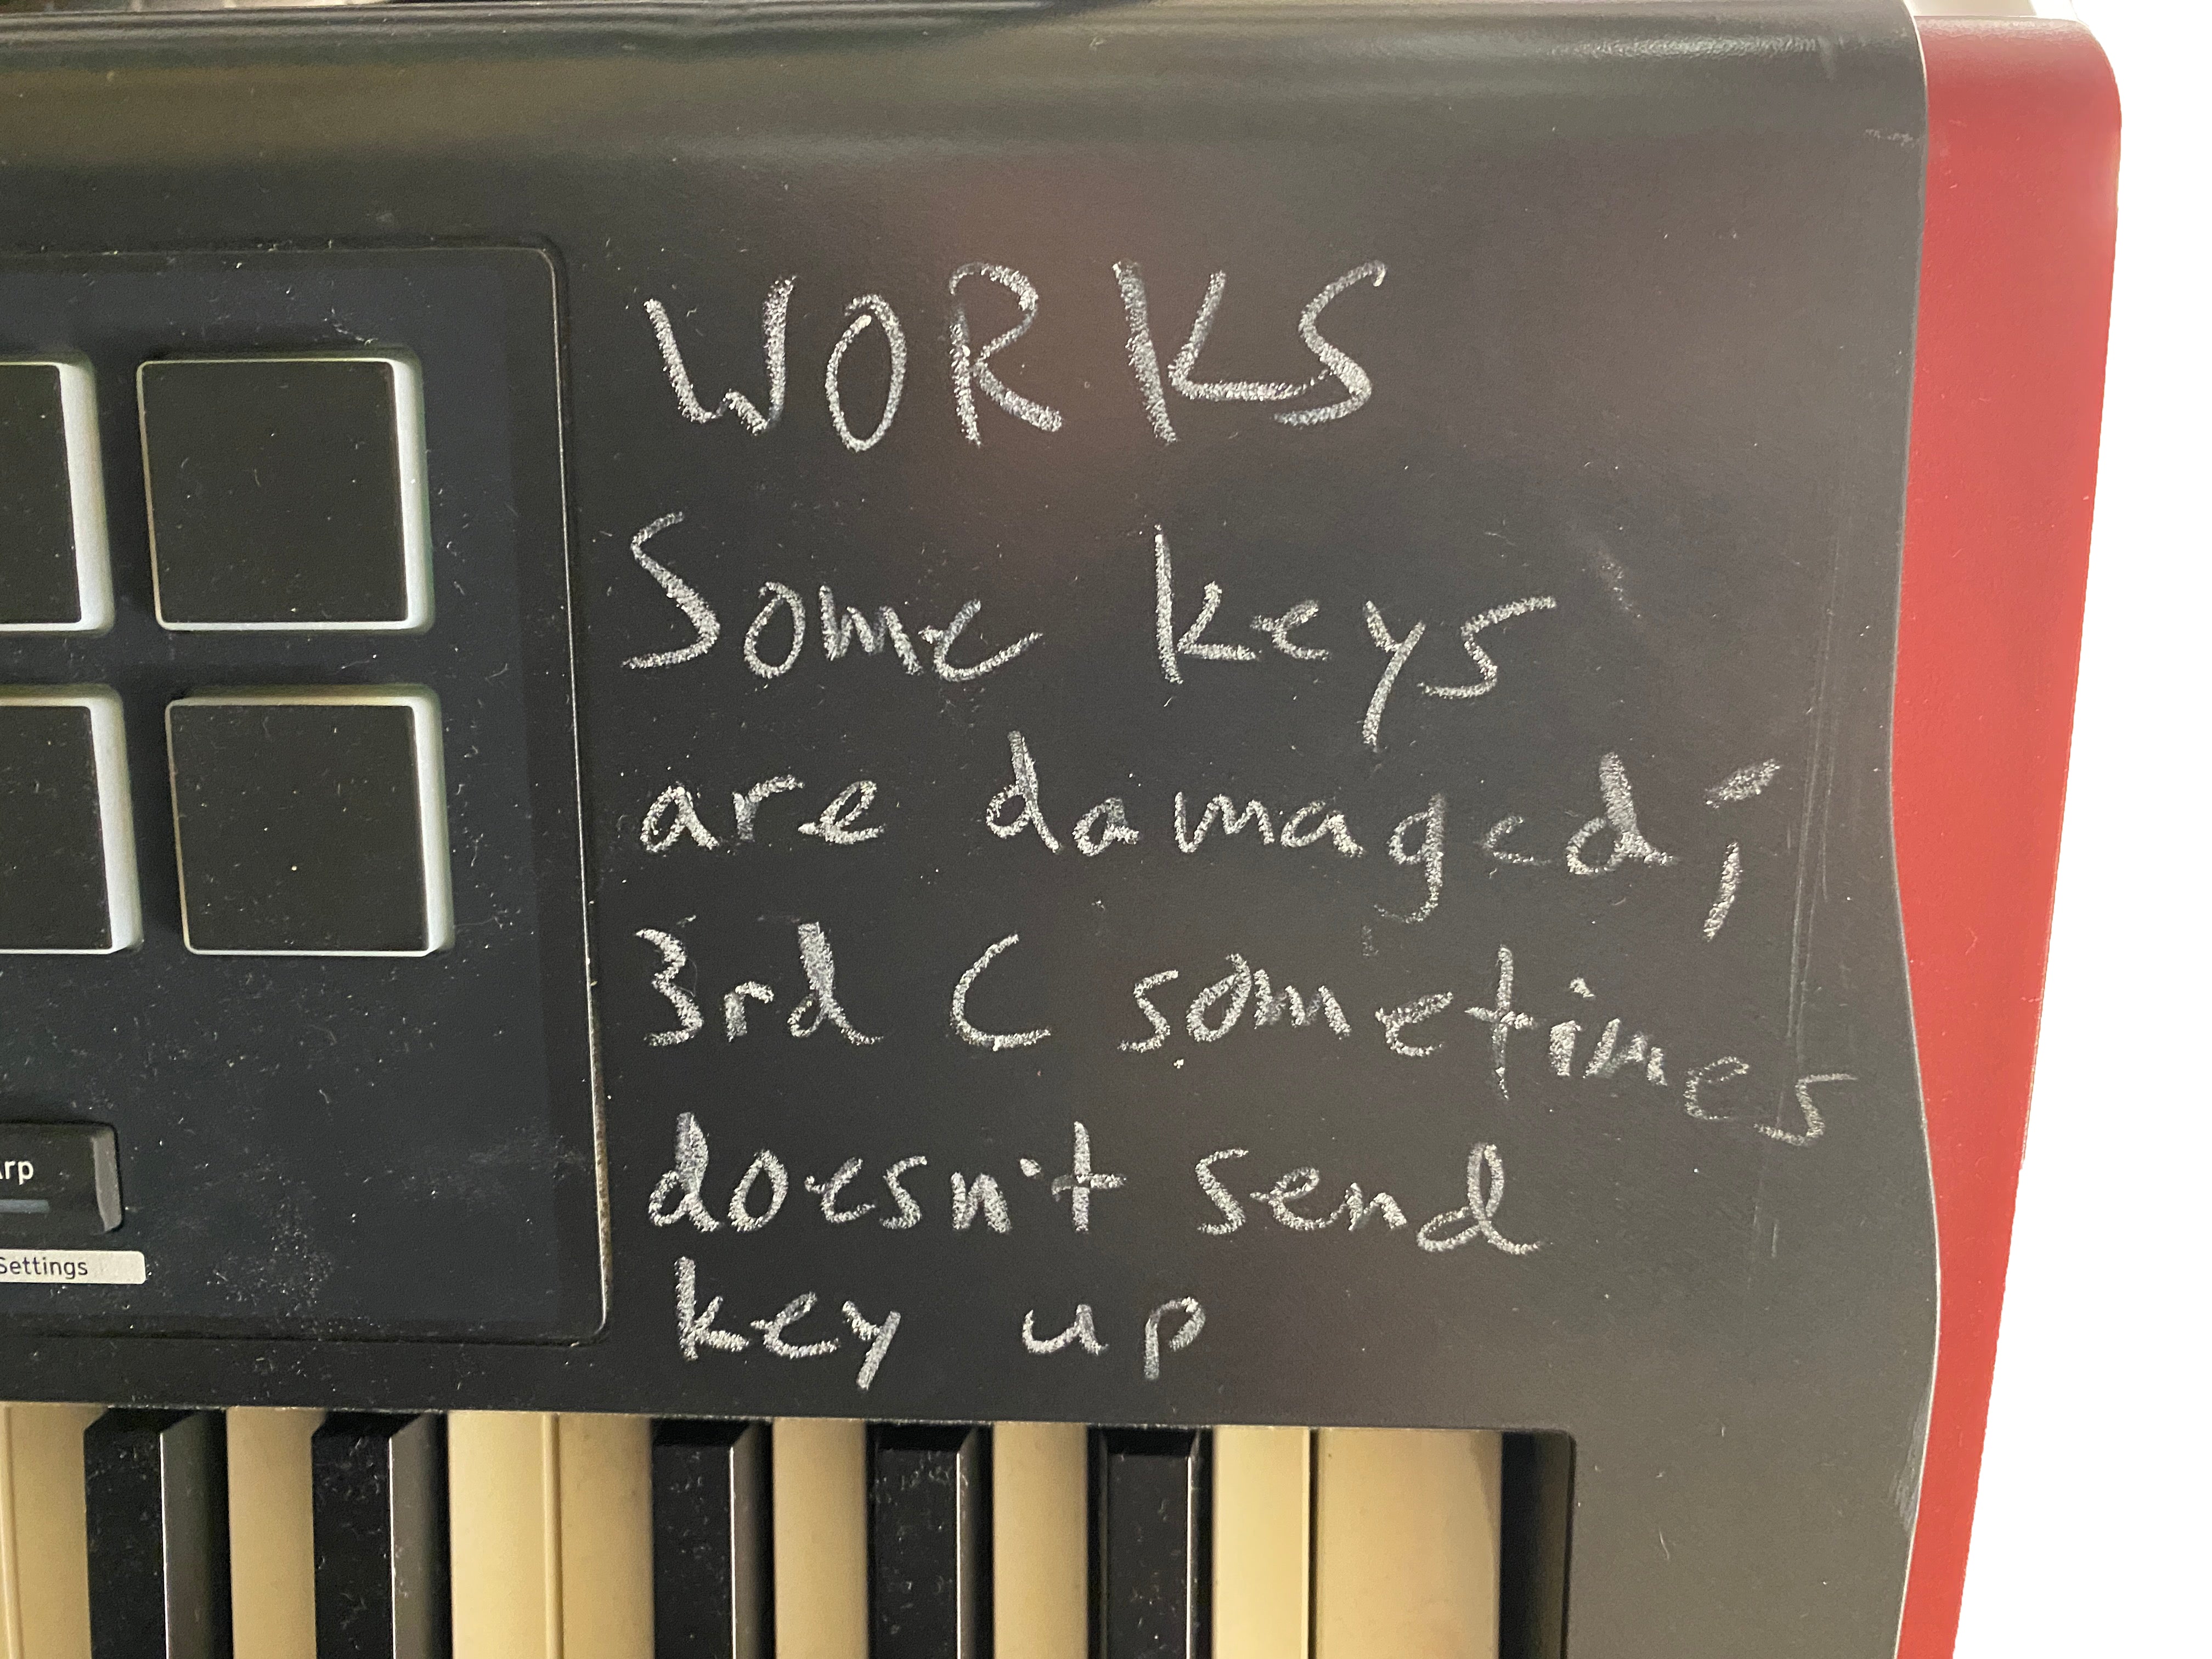 WORKS
Some keys
are damaged;
3rd C sometimes
doesn't send
key up
rp
Settings